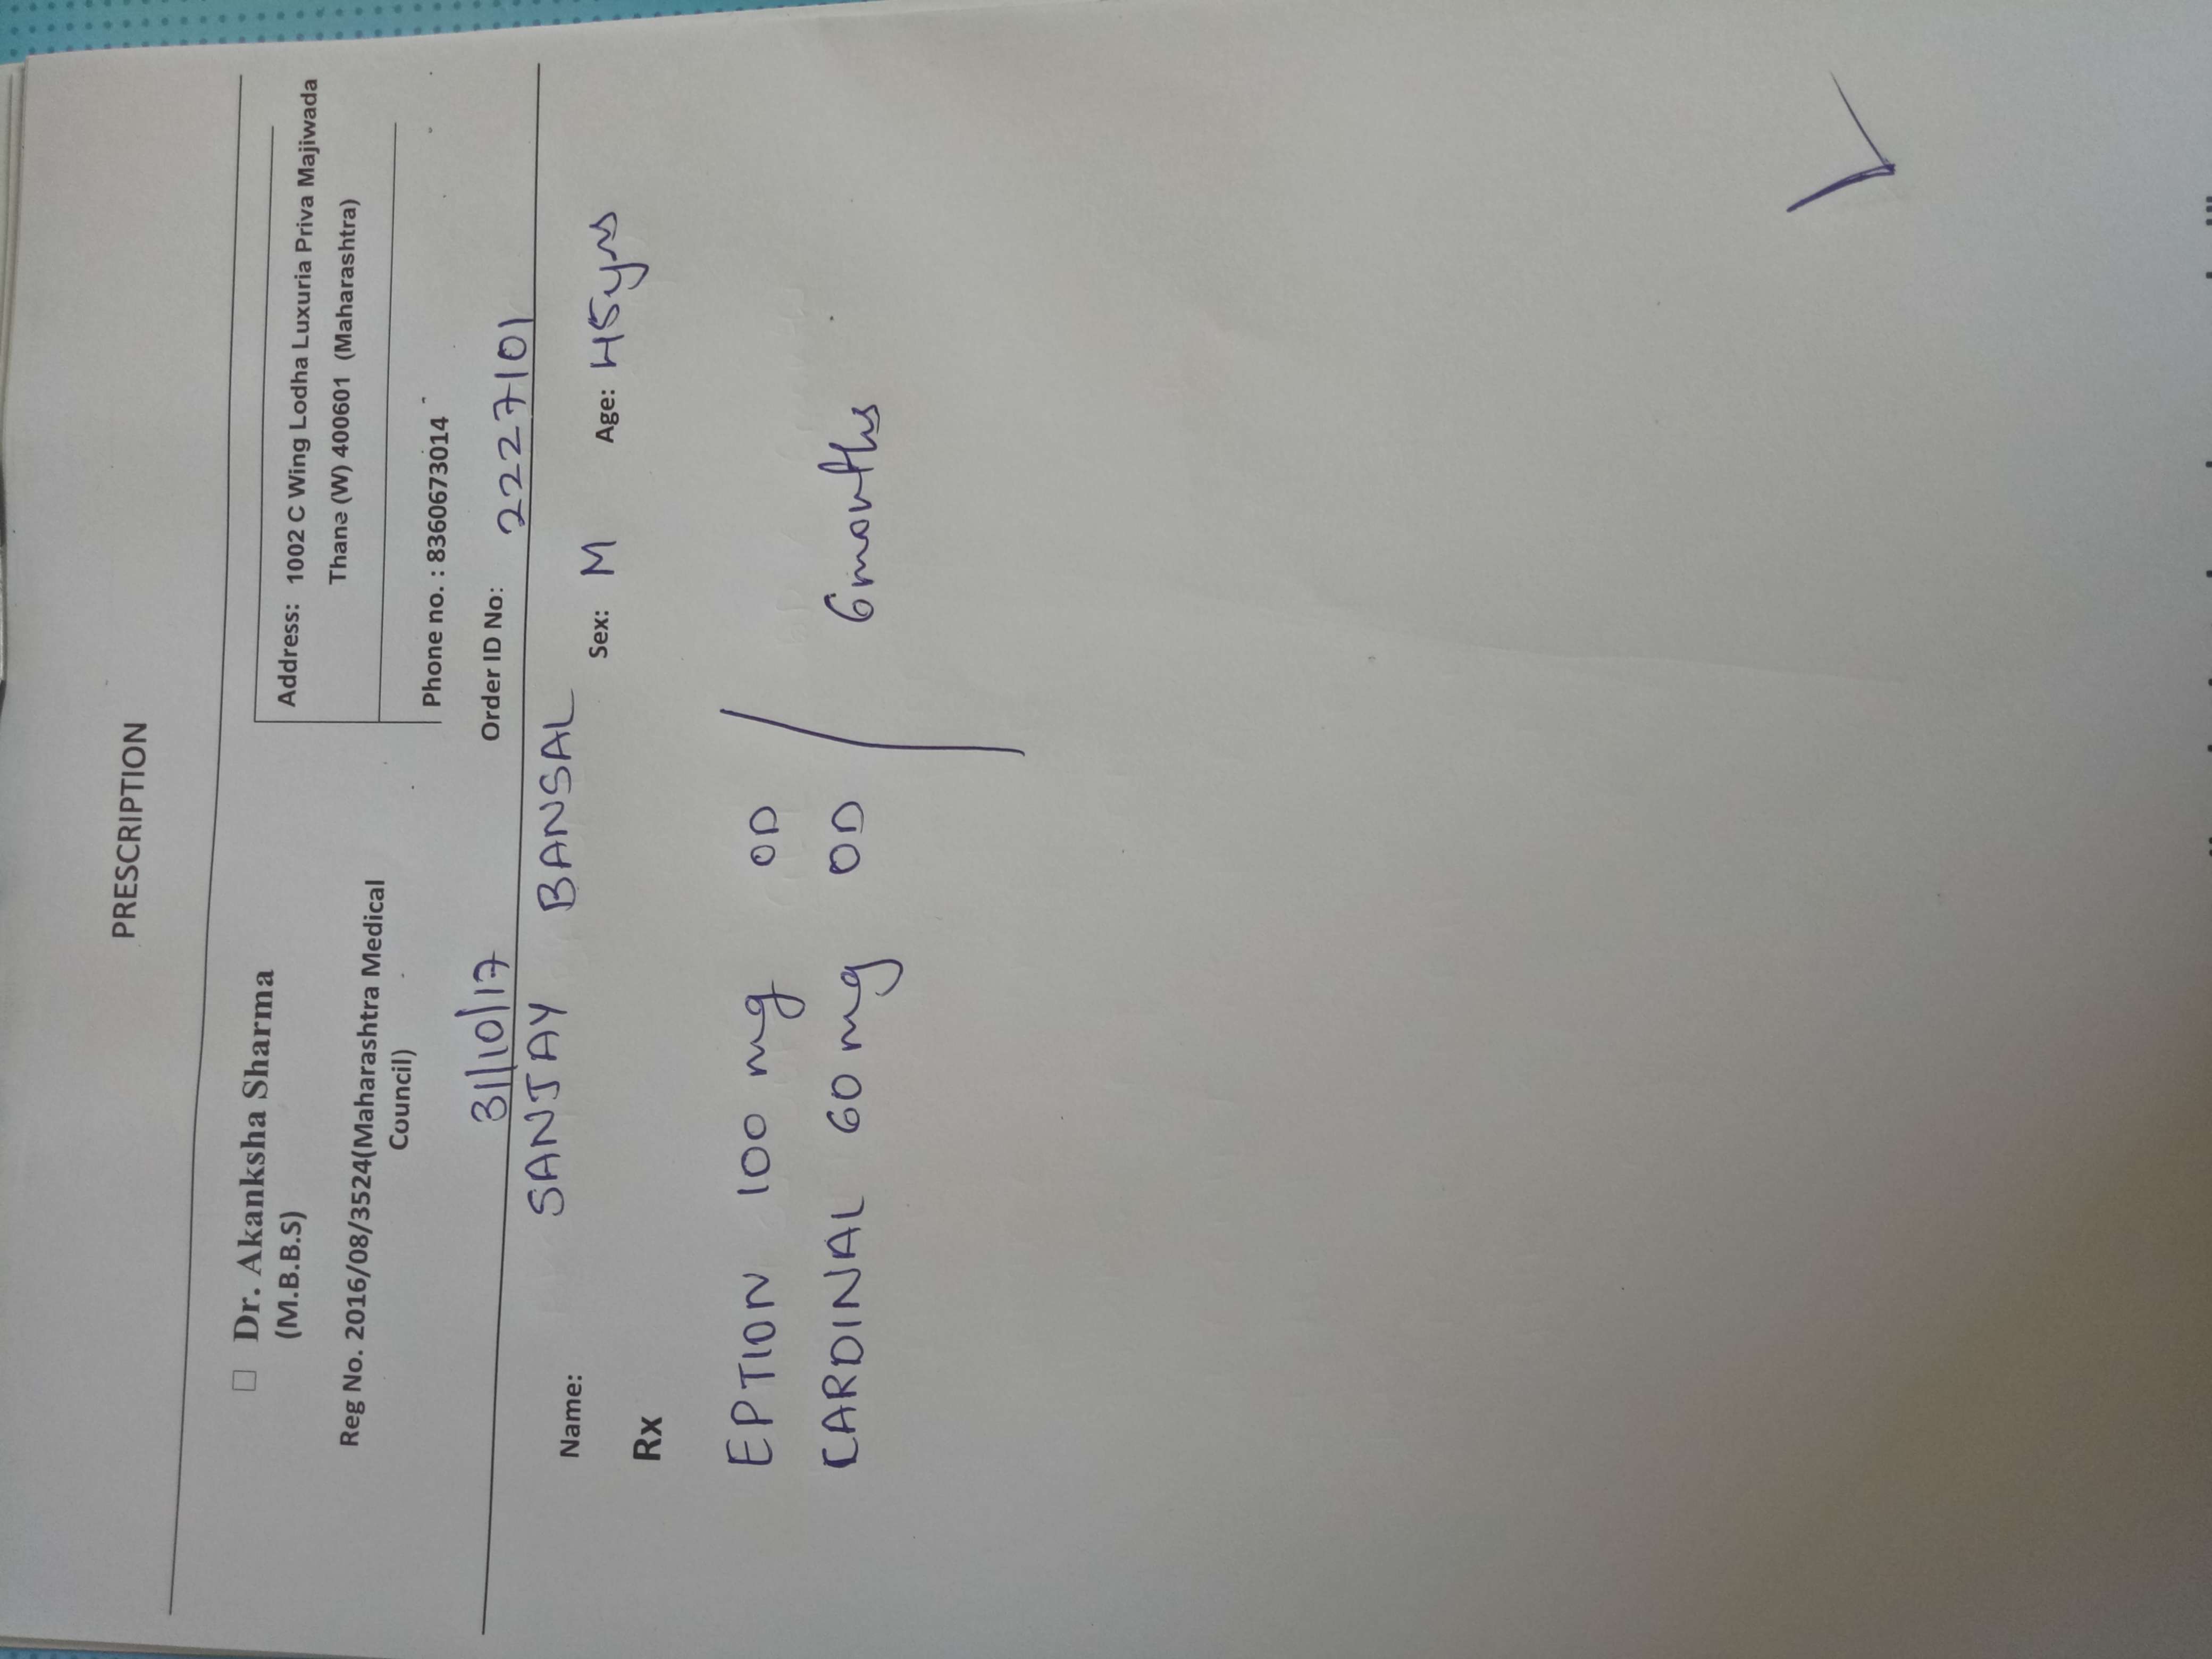 PRESCRIPTION
Dr. Akanksha Sharma
(M.B.B.S)
Reg No. 2016/08/3524(Maharashtra Medical
Council)
Address: 1002 C Wing Lodha Luxuria Priva Majiwada
Thane (W) 400601 (Maharashtra)
Phone no. : 8360673014
31/10/17 Order ID No: 2227101
Name: SANJAY BANSAL Sex: M Age: 45yrs
Rx
EPTION 100 mg OD
CARDINAL 60 mg OD 6 months